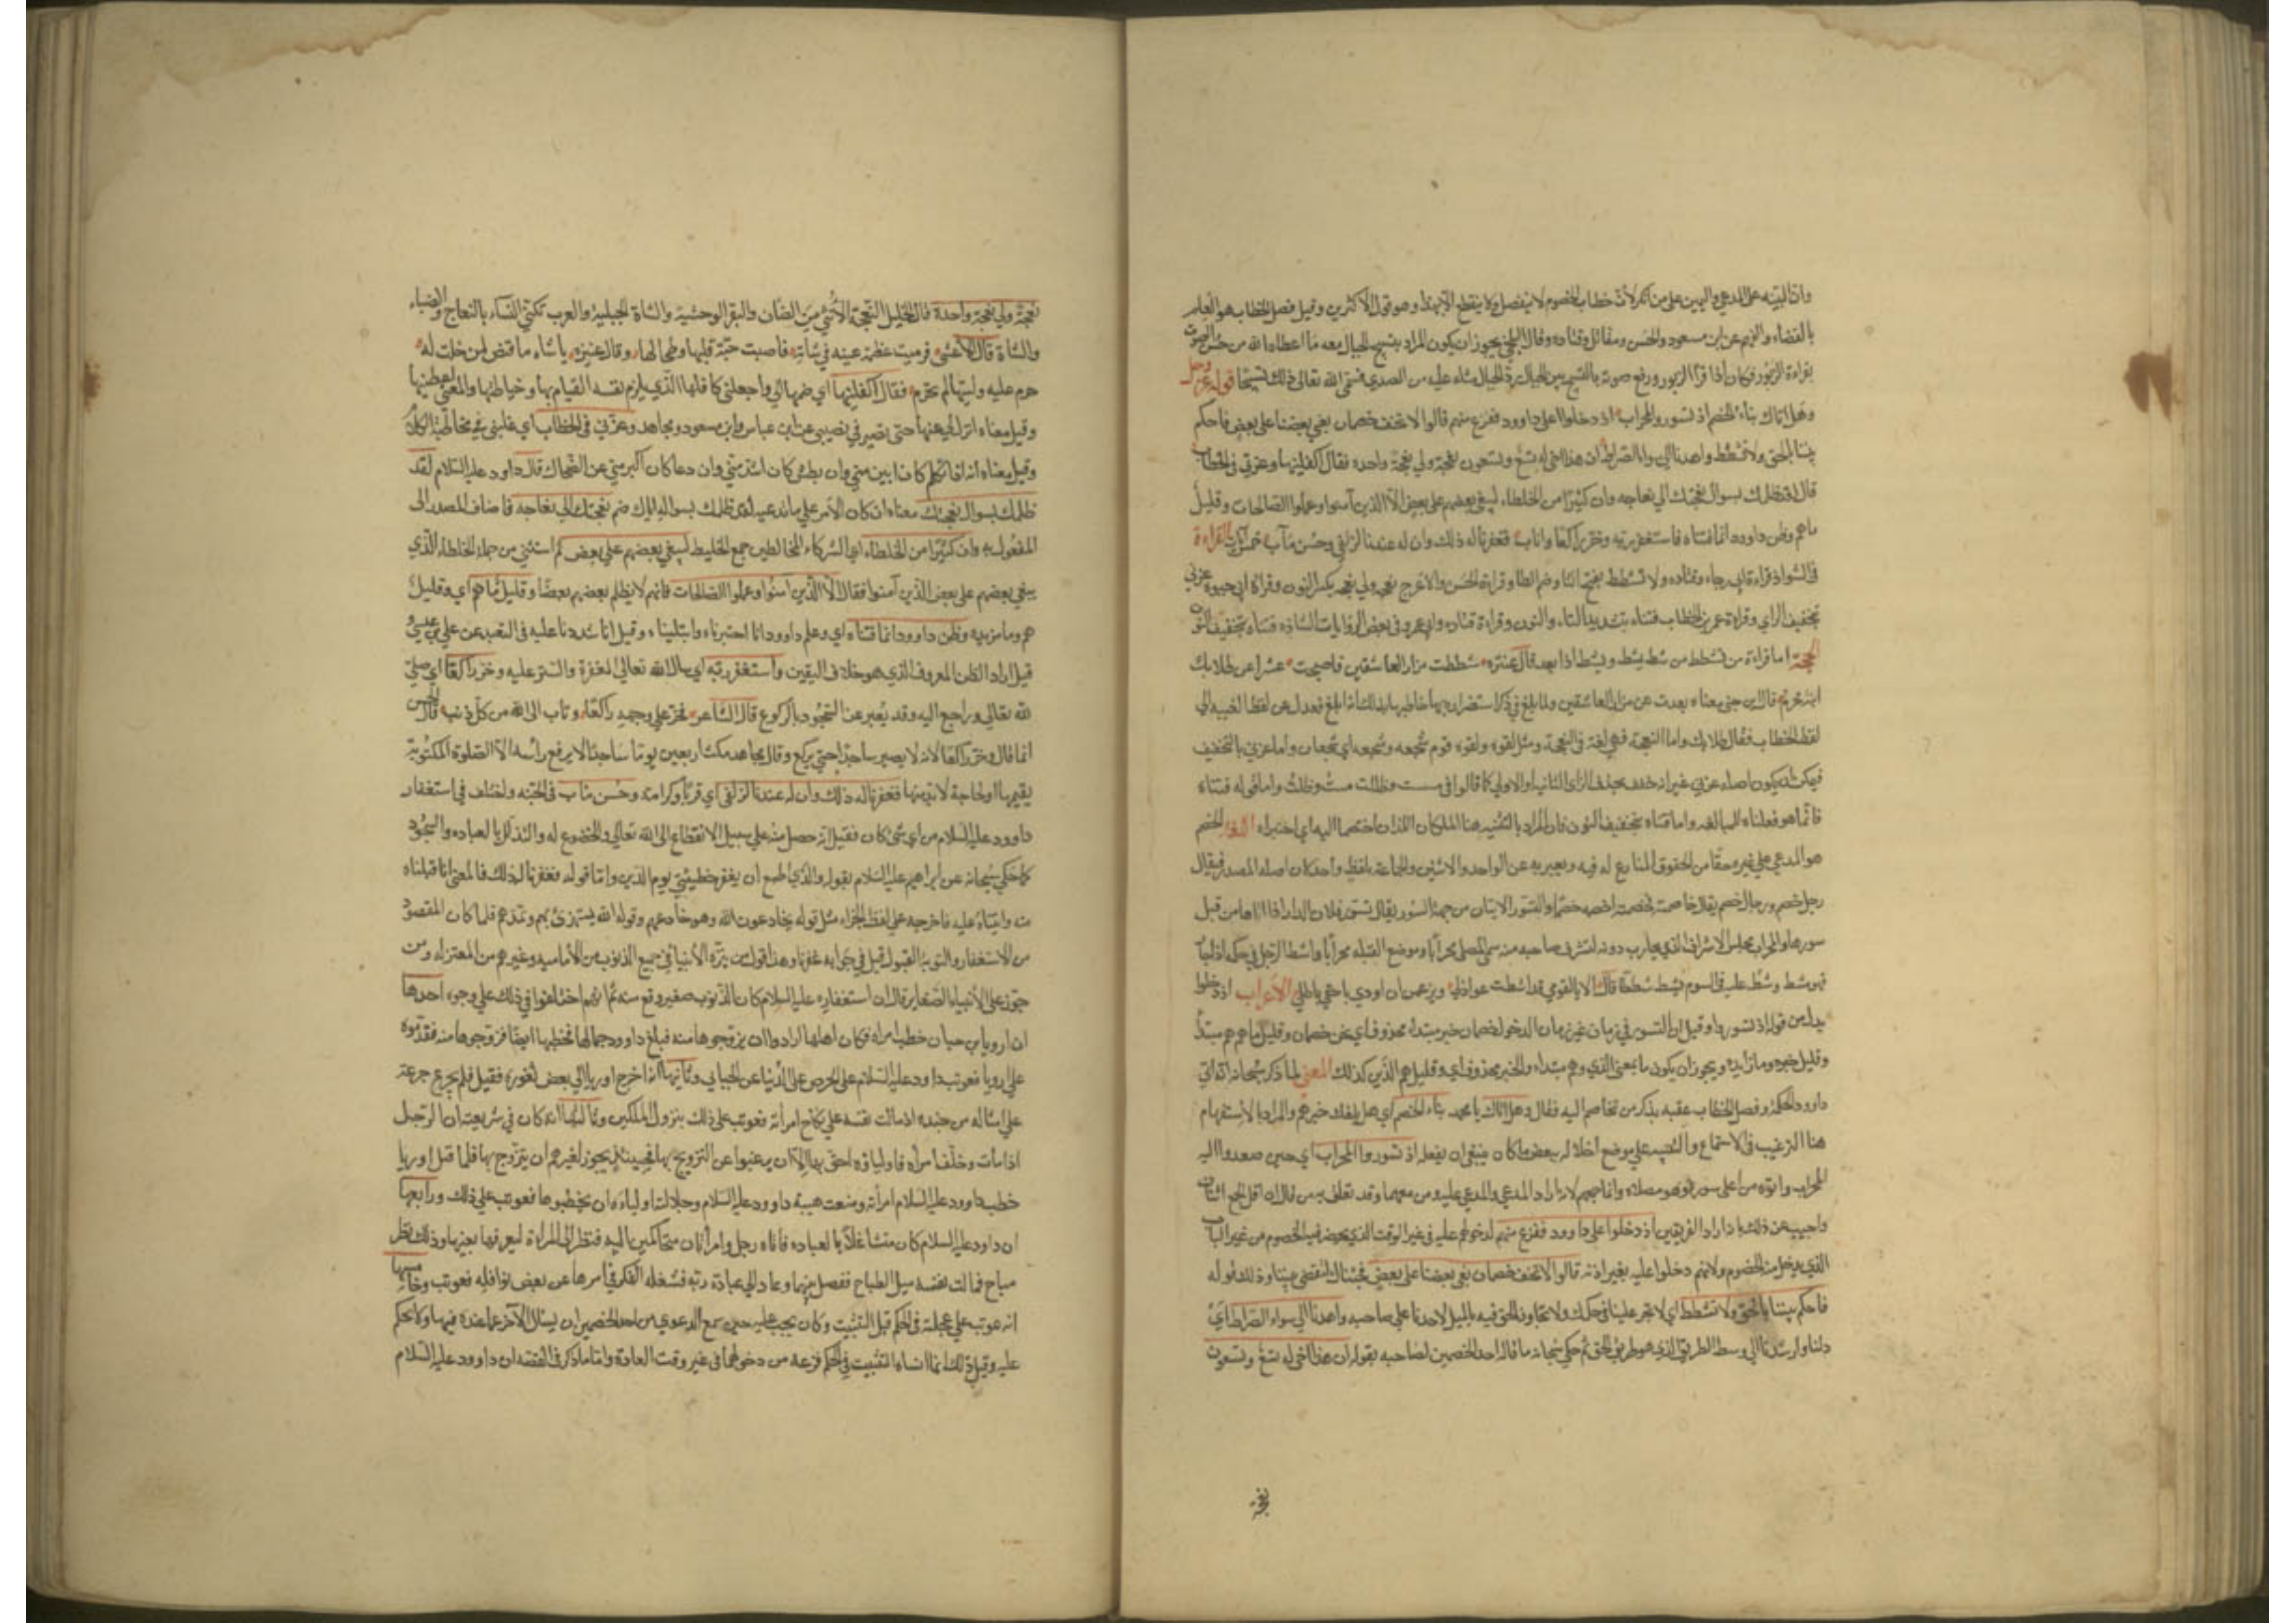 وان البينه على المدعي واليمين على من انكر لان خطاب الخصوم لا ينفصل ولا ينقطع الا بهذا وهو قول الاكثرين وقيل فصل الخطاب هو العلم
بالقضاء والفهم عن ابن مسعود والحسن ومقاتل وقتاده وقال البلخي يجوز ان يكون المراد بتسبيح الجبال معه ما اعطاه الله من حسن الصوت
بقراءة الزبور فكان اذا قرا الزبور ورفع صوته بالتسبيح بين الجبال ردت الجبال مثله عليه من الصدى فسمى الله تعالى ذلك تسبيحا قوله عز وجل
وهل اتاك نباء الخصم اذ تسوروا المحراب اذ دخلوا على داوود ففزع منهم قالوا لا تخف خصمان بغى بعضنا على بعض فاحكم
بيننا بالحق ولا تشطط واهدنا الى سواء الصراط ان هذا اخي له تسع وتسعون نعجة ولي نعجة واحده فقال اكفلنيها وعزني في الخطاب
قال لقد ظلمك بسوال نعجتك الى نعاجه وان كثيرا من الخلطاء ليبغي بعضهم على بعض الا الذين آمنوا وعملوا الصالحات وقليل
ما هم وظن داوود انما فتناه فاستغفر ربه وخر راكعا واناب فغفرنا له ذلك وان له عندنا لزلفى وحسن مآب خمس آيات القراءة
في الشواذ قراءة ابي رجاء وقتاده ولا تشطط بفتح التا وضم الطا وقراءة الحسن والاعرج نعجه ولي نعجه بكسر النون وقراءة ابي حيوة عزني
بتخفيف الزاي وقراءة عمر بن الخطاب فتناه بتشديد التاء والنون وقراءة قتاده وابي عمرو في بعض الروايات الشاذه فتناه بتخفيف النون
الحجة اما قراءة من تشطط من شط يشط ويشط اذا بعد قال عنترة شطت مزار العاشقين فاصبحت عسرا عن طلابك
ابنة مخرم قال ابن جني معناه بعدت عن مزار العاشقين ولما بلغ في ذكر استضراره بها خاطبها بذلك لانه ابلغ فعدل عن لفظ الغيبه الى
لفظ الخطاب فقال طلابك واما النعجة فهي لغة في النعجة ومثل لقوه ولقوه قوم شجعه وشجعه اي شجعان واما عزني بالتخفيف
فيمكن ان يكون اصله عزني غير انه خفف بحذف الزاى الثانيه او الاولى كما قالوا في مسست وظللت مست وظلت واما قوله فتناه
فانما هو فعلناه للمبالغه واما فتناه بتخفيف النون فان المراد بالتثنيه هنا الملكان اللذان اختصما اليه اي اختبراه اللغة الخصم
هو المدعي على غيره حقا من الحقوق المنازع له فيه ويعبر به عن الواحد والاثنين والجماعة بلفظ واحد كان اصله المصدر فيقال
رجل خصم ورجال خصم يقال خاصمته فخصمته اخصمه خصما والتسور الاتيان من جهة السور يقال تسور فلان الدار اذا اتاها من قبل
سورها والمحراب مجلس الاشراف الذي يحارب دونه لشرف صاحبه منه سمي المصلى محرابا وموضع القبله محرابا واشط الرجل في حكمه اذا
فهو مشط وشط عليه في السوم يشط شططا قال الا يا لقومي قد اشطت عواذلي ويزعمن ان اودي بحقي باطلي الاعراب اذ دخلوا
بدل من قوله اذ تسوروا وقيل ان التسور في زمان غير زمان الدخول خصمان خبر مبتداء محذوف اي نحن خصمان وقليل ما هم هم مبتدأ
وقليل خبره وما زايدة ويجوز ان يكون ما بمعنى الذي وهم مبتداء والخبر محذوف اي وقليل هم الذين كذلك المعنى لما ذكر سبحانه انه آتى
داوود الحكمة وفصل الخطاب عقبه بذكر من تخاصم اليه فقال وهل اتاك يا محمد نباء الخصم اي هل بلغك خبرهم والمراد بالاستفهام
هنا الترغيب في الاستماع والتنبيه على موضع اخلاله ببعض ما كان ينبغي ان يفعله اذ تسوروا المحراب اي حين صعدوا اليه
المحراب واتوه من اعلى سوره وهو مصلاه وانما جمعهم لانه اراد المدعي والمدعى عليه ومن معهما وقد تعلق به من قال ان اقل الجمع اثنان
واجيب عن ذلك بانه اراد الفريقين اذ دخلوا على داوود ففزع منهم لدخولهم عليه في غير الوقت الذي يحضر فيه الخصوم من غير الباب
الذي يدخل منه الخصوم ولانهم دخلوا عليه بغير اذنه قالوا لا تخف خصمان بغى بعضنا على بعض فجئناك لتقضي بيننا وذلك قوله
فاحكم بيننا بالحق ولا تشطط اي لا تجر علينا في حكمك ولا تجاوز الحق فيه بالميل لاحدنا على صاحبه واهدنا الى سواء الصراط اي
دلنا وارشدنا الى وسط الطريق الذي هو طريق الحق ثم حكى سبحانه ما قاله احد الخصمين لصاحبه بقوله ان هذا اخي له تسع وتسعون
نعجة
نعجة ولي نعجة واحدة قال الخليل النعجة الانثى من الضان والبقر الوحشية والشاة الجبلية والعرب تكني النساء بالنعاج والضباء
والشاة قال الاعشى فرميت غفلة عينه عن شاته فاصبت حبة قلبها وطحالها وقال عنترة يا شاه ما قنص لمن حلت له
حرم عليه وليتها لم تحرم فقال اكفلنيها اي ضمها الي واجعلني كافلها الذي يلزم نفسه القيام بها وحياطتها والمعنى اعطنيها
وقيل معناه انزل لي عنها حتى تصير في نصيبي عن ابن عباس وابن مسعود ومجاهد وعزني في الخطاب اي غلبني في مخاطبة الكلام
وقيل معناه انه اذا تكلم كان ابين مني وان بطش كان اشد مني وان دعا كان اكبر مني عن الضحاك قال داود عليه السلام لقد
ظلمك بسوال نعجتك معناه ان كان الامر على ما تدعيه لقد ظلمك بسواله اياك ضم نعجتك الى نعاجه فاضاف المصدر الى
المفعول به وان كثيرا من الخلطاء اي الشركاء المخالطين جمع الخليط ليبغي بعضهم على بعض ثم استثنى من جملة الخلطاء الذي
يبغي بعضهم على بعض الذين آمنوا فقال الا الذين امنوا وعملوا الصالحات فانهم لا يظلم بعضهم بعضا وقليل ما هم اي وقليل
هم وما مزيده وظن داوود انما فتناه اي وعلم داوود انا اختبرناه وابتليناه وقيل انا شددنا عليه في التعبد عن علي بن عيسى
قيل اراد الظن المعروف الذي هو خلاف اليقين واستغفر ربه اي سال الله تعالى المغفرة والستر عليه وخر راكعا اي صلى
لله تعالى وراجع اليه وقد يعبر عن السجود بالركوع قال الشاعر فخر على وجهه راكعا وتاب الى الله من كل ذنب قال الحسن
انما قال وخر راكعا لانه لا يصير ساجدا حتى يركع وقال مجاهد مكث اربعين يوما ساجدا لا يرفع رأسه الا الصلوة المكتوبة
يقيمها او لحاجة لا بد منها فغفرنا له ذلك وان له عندنا لزلفى اي قربا وكرامة وحسن مئاب في الجنه واختلف في استغفار
داوود عليه السلام من اي شئ كان فقيل انه حصل منه على سبيل الانقطاع الى الله تعالى والخضوع له والتذلل بالعباده والسجود
كما حكى سبحانه عن ابراهيم عليه السلام بقوله والذي اطمع ان يغفر خطيئتي يوم الدين واما قوله فغفرنا له ذلك فالمعنى انا قبلناه
منه واثبناه عليه فاخرجه على لفظ الجزاء مثل قوله يخادعون الله وهو خادعهم وقوله الله يستهزئ بهم ويمدهم فلما كان المقصود
من الاستغفار والتوبة القبول قيل في جوابه غفرنا وهذا قول من ينزه الانبيا في جميع الذنوب من الاماميه وغيرهم من المعتزله ومن
جوز على الانبياء الصغاير قال ان استغفاره عليه السلام كان لذنوب صغير وقع منه ثم انهم اختلفوا في ذلك على وجوه احدها
ان اوريا بن حيان خطب امراه فكان اهلها ارادوا ان يزوجوها منه فبلغ داوود جمالها فخطبها ايضا فزوجوها منه فقدموه
على اوريا فعوتب داود عليه السلام على الحرص على الدنيا عن الجبائي وثانيها انه اخرج اوريا الى بعض ثغوره فقيل فلم يجزع جزعه
على امثاله من جنده اذ مالت نفسه على نكاح امرأته فعوتب على ذلك بنزول الملكين وثالثها انه كان في شريعته ان الرجل
اذا مات وخلف امرأه فاولياؤه احق بها الا ان يرغبوا عن التزويج بها فحينئذ يجوز لغيرهم ان يتزوج بها فلما قتل اوريا
خطب داوود عليه السلام امرأته ومنعت هيبة داوود عليه السلام وجلالته اولياءه ان يخطبوها فعوتب على ذلك ورابعها
ان داود عليه السلام كان متشاغلا بالعباده فأتاه رجل وامرأتان متحاكمين اليه فنظر الى المراة ليعرفها بعينها وذلك نظر
مباح فمالت نفسه ميل الطباع ففصل بينهما وعاد الى عبادة ربه فشغله الفكر في امرها عن بعض نوافله فعوتب وخامسها
انه عوتب على عجلته في الحكم قبل التثبيت وكان يجب عليه حين سمع الدعوى من احد الخصمين ان يسئل الآخر عما عنده فيها ولا يحكم
عليه وقيل ذلك انما انساه التثبيت في الحكم فزعه من دخولهما في غير وقت العادة واما ما ذكر في القصة ان داوود عليه السلام